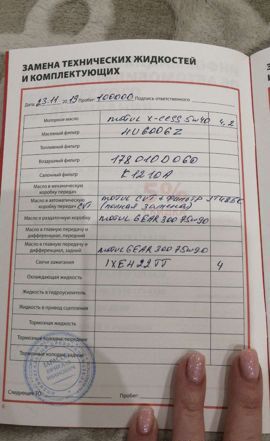 ЗАМЕНА ТЕХНИЧЕСКИХ ЖИДКОСТЕЙ
И КОМПЛЕКТУЮЩИХ
Дата 23.11.19 Пробег 100000 Подпись ответственного
Моторное масло motul x-cess 5w40 4,2
Масляный фильтр HU6006Z
Топливный фильтр
Воздушный фильтр 1780100060
Салонный фильтр K1210A
Масло в механическую
коробку передач
Масло в автоматическую motul CVT + фильтр
коробку передач CVT (полная замена)
Масло в раздаточную коробку motul GEAR 300 75w90
Масло в главную передачу и
дифференциал, передний
Масло в главную передачу и
дифференциал, задний motul GEAR 300 75w90
Свечи зажигания IXEH22TT 4
Охлаждающая жидкость
Жидкость в гидроусилитель
Жидкость в привод сцепления
Тормозная жидкость
Тормозные колодки передние
Тормозные колодки задние
Следующее ТО: Пробег:
6